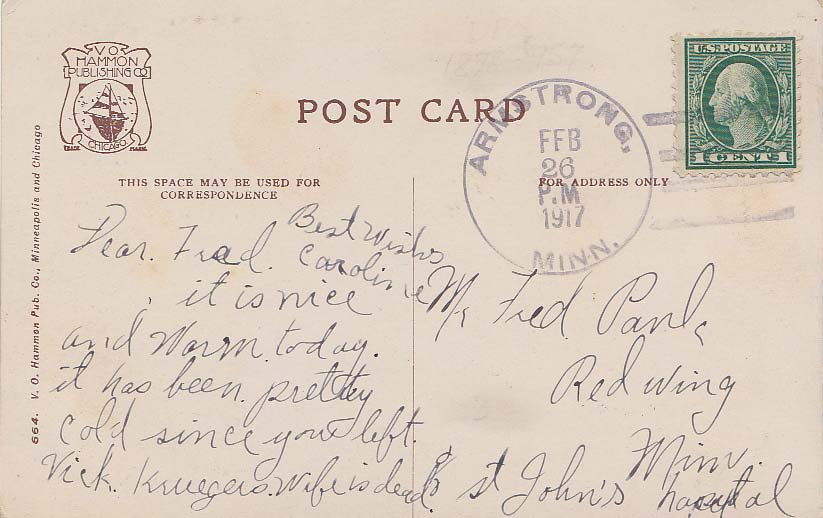 VO
HAMMON
PUBLISHING CO
CHICAGO
TRADE MARK
POST CARD
THIS SPACE MAY BE USED FOR
CORRESPONDENCE
FOR ADDRESS ONLY
664. V. O. Hammon Pub. Co., Minneapolis and Chicago
U.S. POSTAGE
1 CENT 1
ARMSTRONG,
FEB
26
P.M
1917
MINN.
Best wishes
Caroline
Dear. Fred.
it is nice
and Warm. today.
it has been pretty
cold since you left.
Vick. Kruegers. wife is dead.
Mr Fred
Red wing
Minn.
c/o St John's hospital